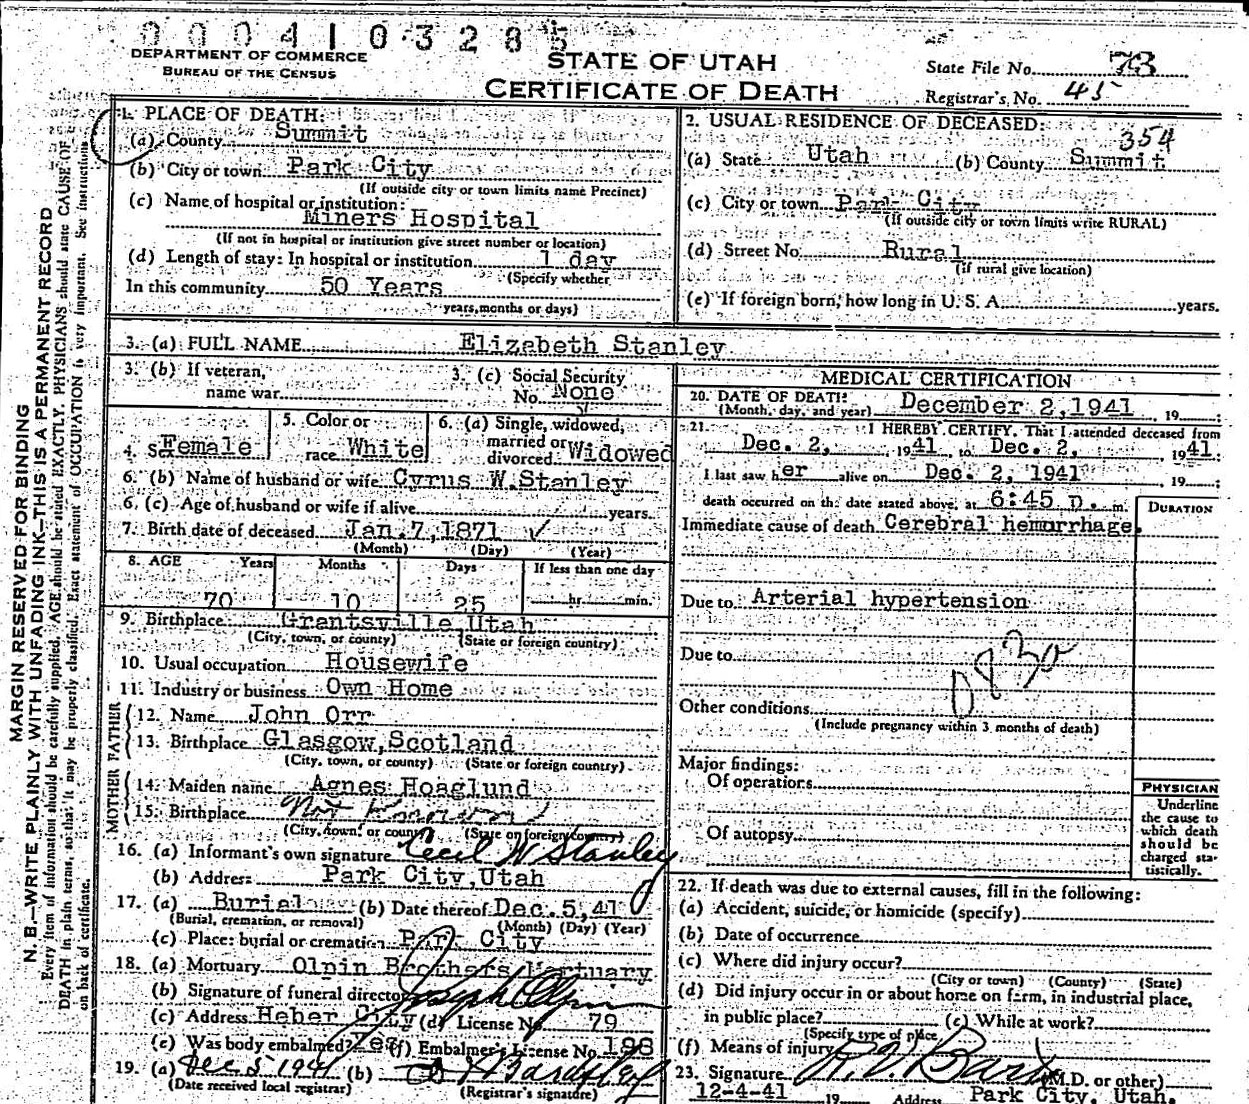 0004103285
DEPARTMENT OF COMMERCE
BUREAU OF THE CENSUS
STATE OF UTAH
CERTIFICATE OF DEATH
State File No. 73
Registrar's No. 45
MARGIN RESERVED FOR BINDING
N. B.—WRITE PLAINLY WITH UNFADING INK—THIS IS A PERMANENT RECORD
Every item of information should be carefully supplied. AGE should be stated EXACTLY. PHYSICIANS should state CAUSE OF
DEATH in plain terms, so that it may be properly classified. Exact statement of OCCUPATION is very important. See instructions
on back of certificate.
1. PLACE OF DEATH:
(a) County Summit
(b) City or town Park City
(If outside city or town limits name Precinct)
(c) Name of hospital or institution:
Miners Hospital
(If not in hospital or institution give street number or location)
(d) Length of stay: In hospital or institution 1 day
(Specify whether
In this community 50 Years
years, months or days)
2. USUAL RESIDENCE OF DECEASED:
354
(a) State Utah (b) County Summit
(c) City or town Park City
(If outside city or town limits write RURAL)
(d) Street No. Rural
(if rural give location)
(e) If foreign born, how long in U. S. A. years.
3. (a) FULL NAME Elizabeth Stanley
3. (b) If veteran,
name war
3. (c) Social Security
No. None
4. Sex Female
5. Color or
race White
6. (a) Single, widowed,
married or
divorced Widowed
6. (b) Name of husband or wife Cyrus W. Stanley
6. (c) Age of husband or wife if alive years
7. Birth date of deceased Jan. 7, 1871 ✓
(Month) (Day) (Year)
8. AGE Years Months Days If less than one day
70 10 25 hr. min.
9. Birthplace Grantsville Utah
(City, town, or county) (State or foreign country)
10. Usual occupation Housewife
11. Industry or business Own Home
FATHER
12. Name John Orr
13. Birthplace Glasgow, Scotland
(City, town, or county) (State or foreign country)
MOTHER
14. Maiden name Agnes Hoaglund
15. Birthplace Not Known
(City, town, or county) (State or foreign country)
16. (a) Informant's own signature Cecil W Stanley
(b) Address Park City, Utah
17. (a) Burial (b) Date thereof Dec. 5, 41
(Burial, cremation, or removal) (Month) (Day) (Year)
(c) Place: burial or cremation Park City
18. (a) Mortuary Olpin Brothers Mortuary
(b) Signature of funeral director Joseph Olpin
(c) Address Heber City (d) License No. 79
(e) Was body embalmed? Yes (f) Embalmer's License No. 198
19. (a) Dec 5 1941 (b)
(Date received local registrar) (Registrar's signature)
MEDICAL CERTIFICATION
20. DATE OF DEATH:
(Month, day, and year) December 2, 1941, 19
21. I HEREBY CERTIFY, That I attended deceased from
Dec. 2, 1941, to Dec. 2, 1941;
I last saw her alive on Dec. 2, 1941 19 ;
death occurred on the date stated above, at 6:45 p. m.
DURATION
Immediate cause of death Cerebral hemorrhage.
Due to Arterial hypertension
Due to
0830
Other conditions
(Include pregnancy within 3 months of death)
Major findings:
Of operations
Of autopsy
PHYSICIAN
Underline
the cause to
which death
should be
charged sta-
tistically.
22. If death was due to external causes, fill in the following:
(a) Accident, suicide, or homicide (specify)
(b) Date of occurrence
(c) Where did injury occur?
(City or town) (County) (State)
(d) Did injury occur in or about home on farm, in industrial place,
in public place? (e) While at work?
(Specify type of place
(f) Means of injury
23. Signature (M.D. or other)
12-4-41 19 Address Park City, Utah.